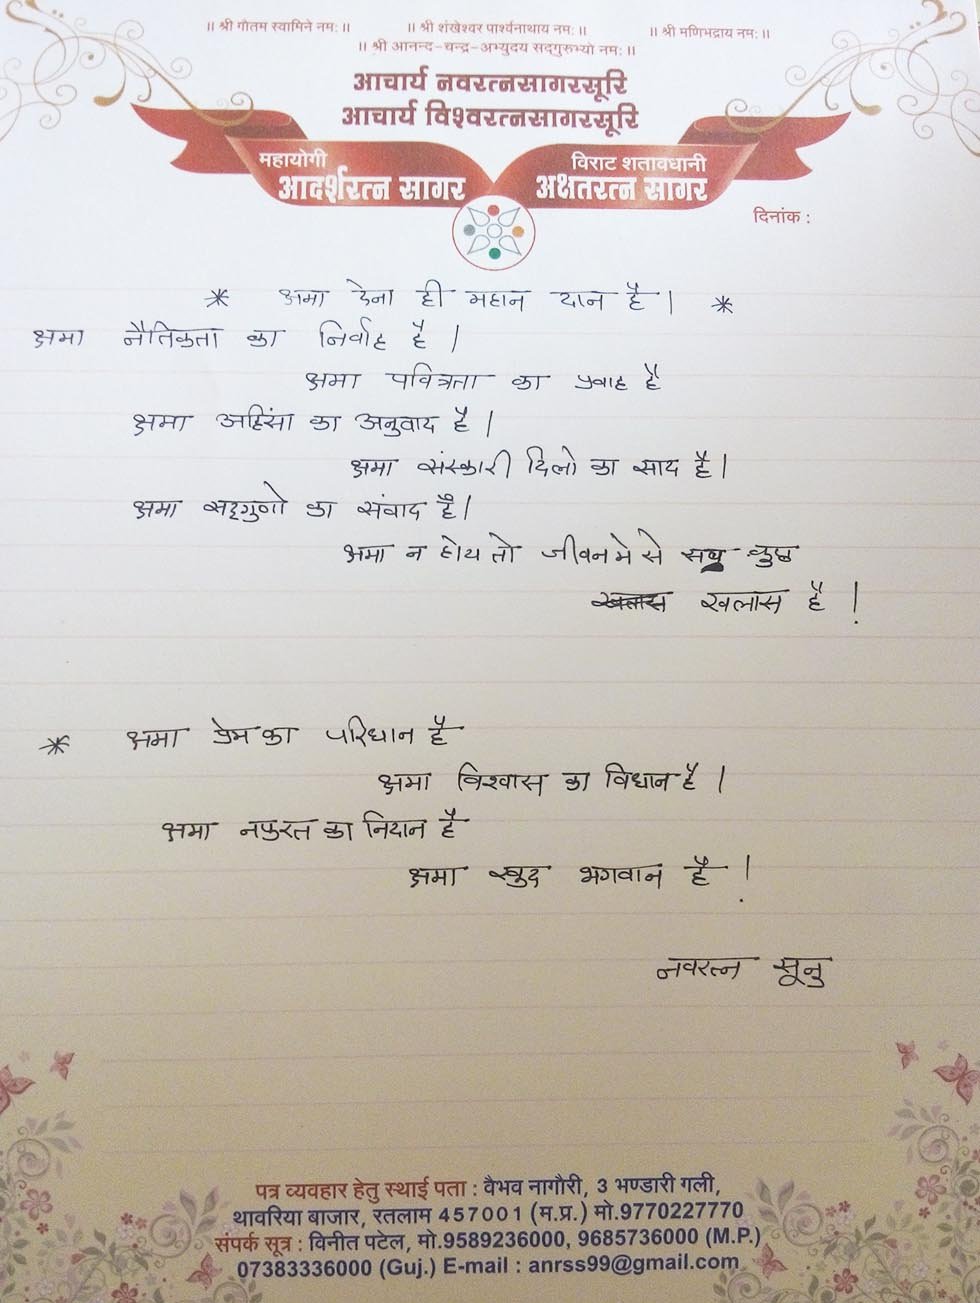 ॥ श्री गौतम स्वामिने नमः॥ ॥ श्री शंखेश्वर पार्श्वनाथाय नमः॥ ॥ श्री मणिभद्राय नमः॥
॥ श्री आनन्द-चन्द्र-अभ्युदय सद्गुरुभ्यो नमः॥
आचार्य नवरत्नसागरसूरि
आचार्य विश्वरत्नसागरसूरि
महायोगी विराट शतावधानी
आदर्शरत्न सागर अक्षतरत्न सागर
दिनांक :
* क्षमा देना ही महान दान है। *
क्षमा नैतिकता का निर्वाह है।
क्षमा पवित्रता का प्रवाह है
क्षमा अहिंसा का अनुवाद है।
क्षमा संस्कारी दिलो का साद है।
क्षमा सद्गुणो का संवाद है।
क्षमा न होय तो जीवन मे से सब कुछ
खलास खलास है !
* क्षमा प्रेम का परिधान है
क्षमा विश्वास का विधान है।
क्षमा नफरत का निदान है
क्षमा खुद भगवान है !
नवरत्न सूनु
पत्र व्यवहार हेतु स्थाई पता : वैभव नागौरी, 3 भण्डारी गली,
थावरिया बाजार, रतलाम 457001 (म.प्र.) मो.9770227770
संपर्क सूत्र : विनीत पटेल, मो.9589236000, 9685736000 (M.P.)
07383336000 (Guj.) E-mail : anrss99@gmail.com